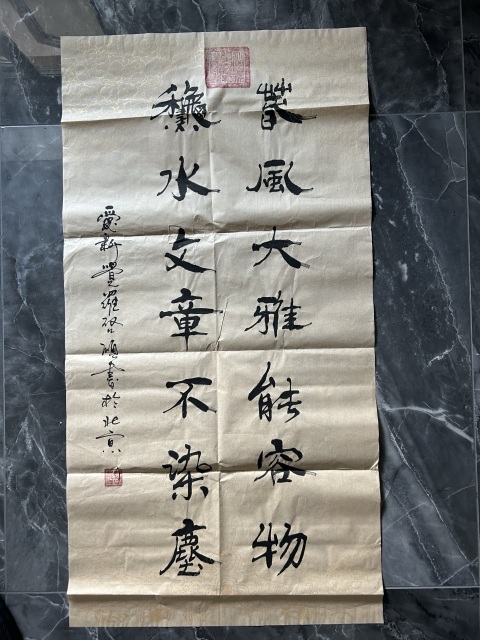 春風大雅能容物
穐水文章不染塵
愛新覺羅啓碩書於北京